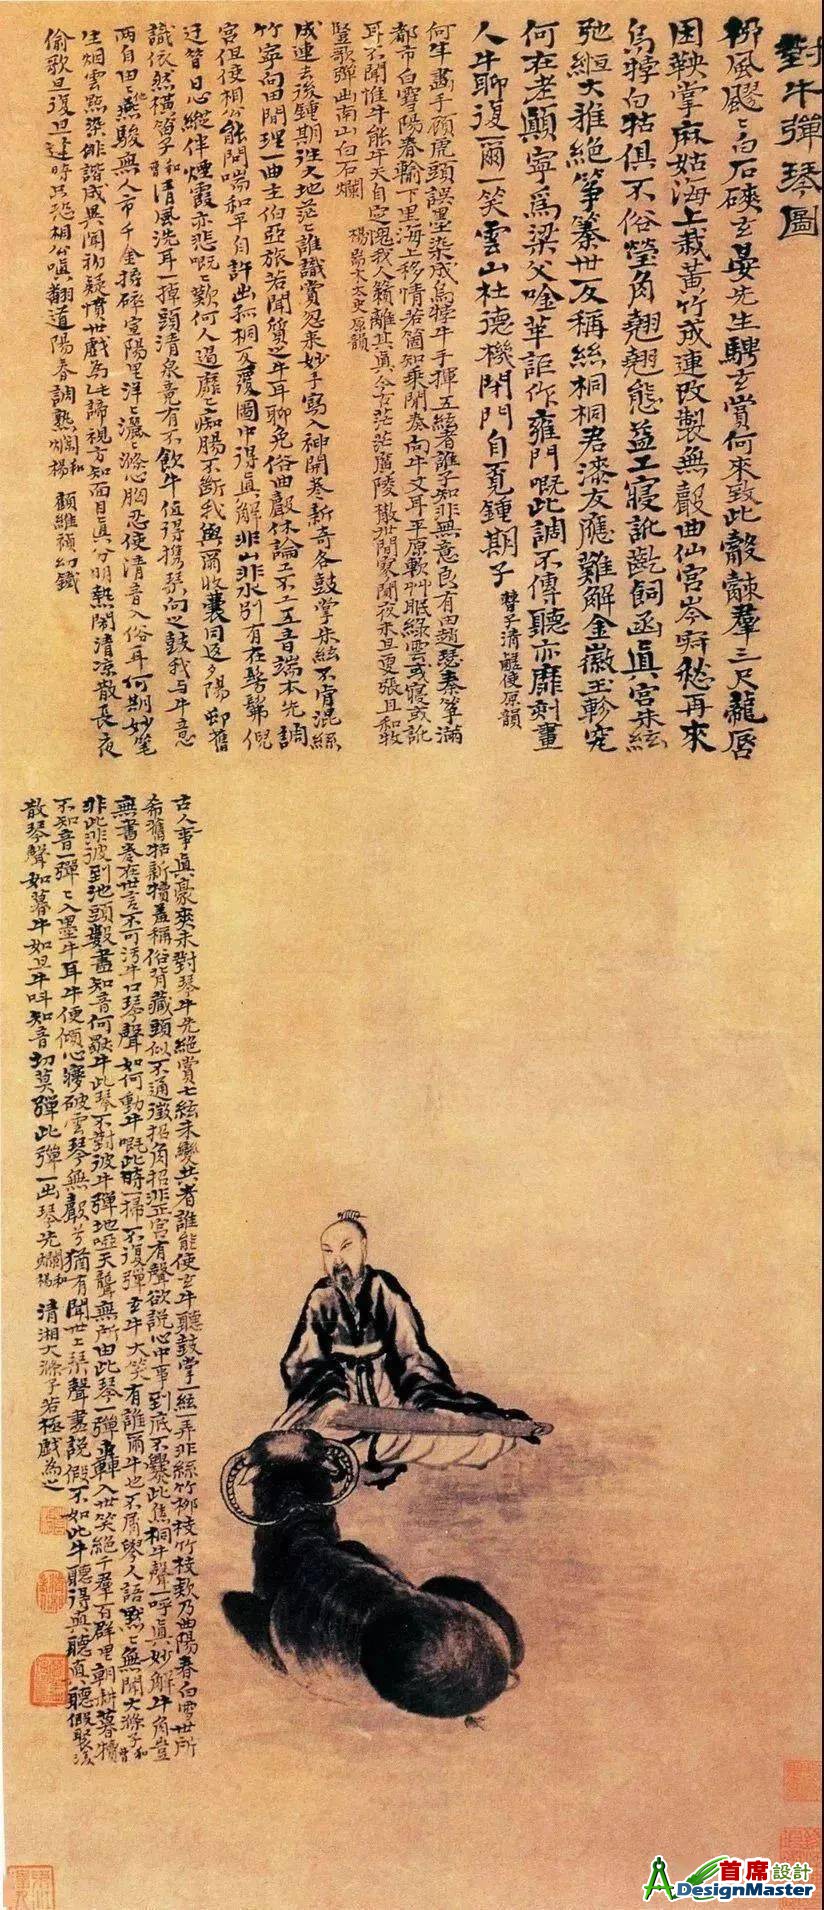 對牛彈琴圖
柳風颸颸白石磢玄晏先生騁玄賞何來致此觳觫羣三尺龍唇
困鞅掌麻姑海上栽黃竹成連改製無聲曲仙宮岑寂愁再來
烏犉白牯俱不俗瑩角翹翹態益工寢訛齕飼函真宮朱絃
弛縆大雅絕箏篆世反稱絲桐桐君漆友應難解金徽玉軫究
何在老顛寧爲梁父唫莘詎作雍門嘅此調不傳聽亦靡刻畫
人牛聊復爾一笑雲山杜德機閉門自覓鍾期子 子清鹺使原韻
何年畫手顧虎頭誤墨染成烏犉牛手揮五絃者誰子知非無意良有由趙瑟秦箏滿
都市白雪陽春翻下里海上移情若箇知乘閒奏向牛丈耳平原軟艸眠綠雲或寢或訛
耳不聞惟牛能牛天自定愧我人籟離其真今古茫茫廣陵散世間寥闃夜未旦更張且和牧
豎歌彈出南山白石爛 楊耑木太史原韻
成連去後鍾期往大地茫ミ誰識賞忽來妙手寫入神開卷新奇各鼓掌朱絃不肯混絲
竹寧向田間理一曲主伯亞旅若聞質之牛耳聊免俗曲聲休論工不工五音端本先調
宮但使相公能問喘和平自許出孤桐反覆圖中得真解非山非水別有在髣髴倪
迂昔日心縱伴煙霞亦悲嘅ミ歎何人過靡ミ痴腸不斷我與爾收囊同返夕陽邨舊
識依然橫笛子 和曹 清風洗耳一掉頭清泉竟有不飲牛值得攜琴向之鼓我与牛意
两自由ミ燕駿無人市千金摔碎宣陽里洋ミ灑ミ滌心胸忍使清音入俗耳何期妙筆
生烟雲點染俳諧成異聞初疑憤世戲為此諦視方知面目真分明熱鬧清涼散長夜
偷歌旦復旦逢時只恐相公嗔翻道陽春調熟爛 和楊 顧維禎幻鐵
古人事真豪爽未對琴牛先絕賞七絃未變共者誰能使玄牛聽鼓掌一絃一弄非絲竹柳枝竹枝欸乃曲陽春白雪世所
希舊牯新犢羞稱俗背藏頭似不通徵招角招非正宮有聲欲說心中事到底不爨此焦桐牛聲一呼真妙解牛角豈
無書卷在世言不可污牛口琴聲如何動牛嘅此時一掃不復彈玄牛大笑有誰爾牛也不屑學人語默ミ無聞大滌子 和曹
非此非彼到池頭數盡知音何獨牛此琴不對彼牛彈地啞天聾無所由此琴一彈轟入世笑絕千羣百群里朝耕暮犢
不知音一彈ミ入墨牛耳牛便傾心夢破雲琴無聲兮猶有聞世上琴聲盡說假不如此牛聽得真聽真聽假聚復
散琴聲如暮牛如旦牛叫知音切莫彈此彈一出琴先爛 和楊 清湘大滌子若極戲為之
首席設計
DesignMaster